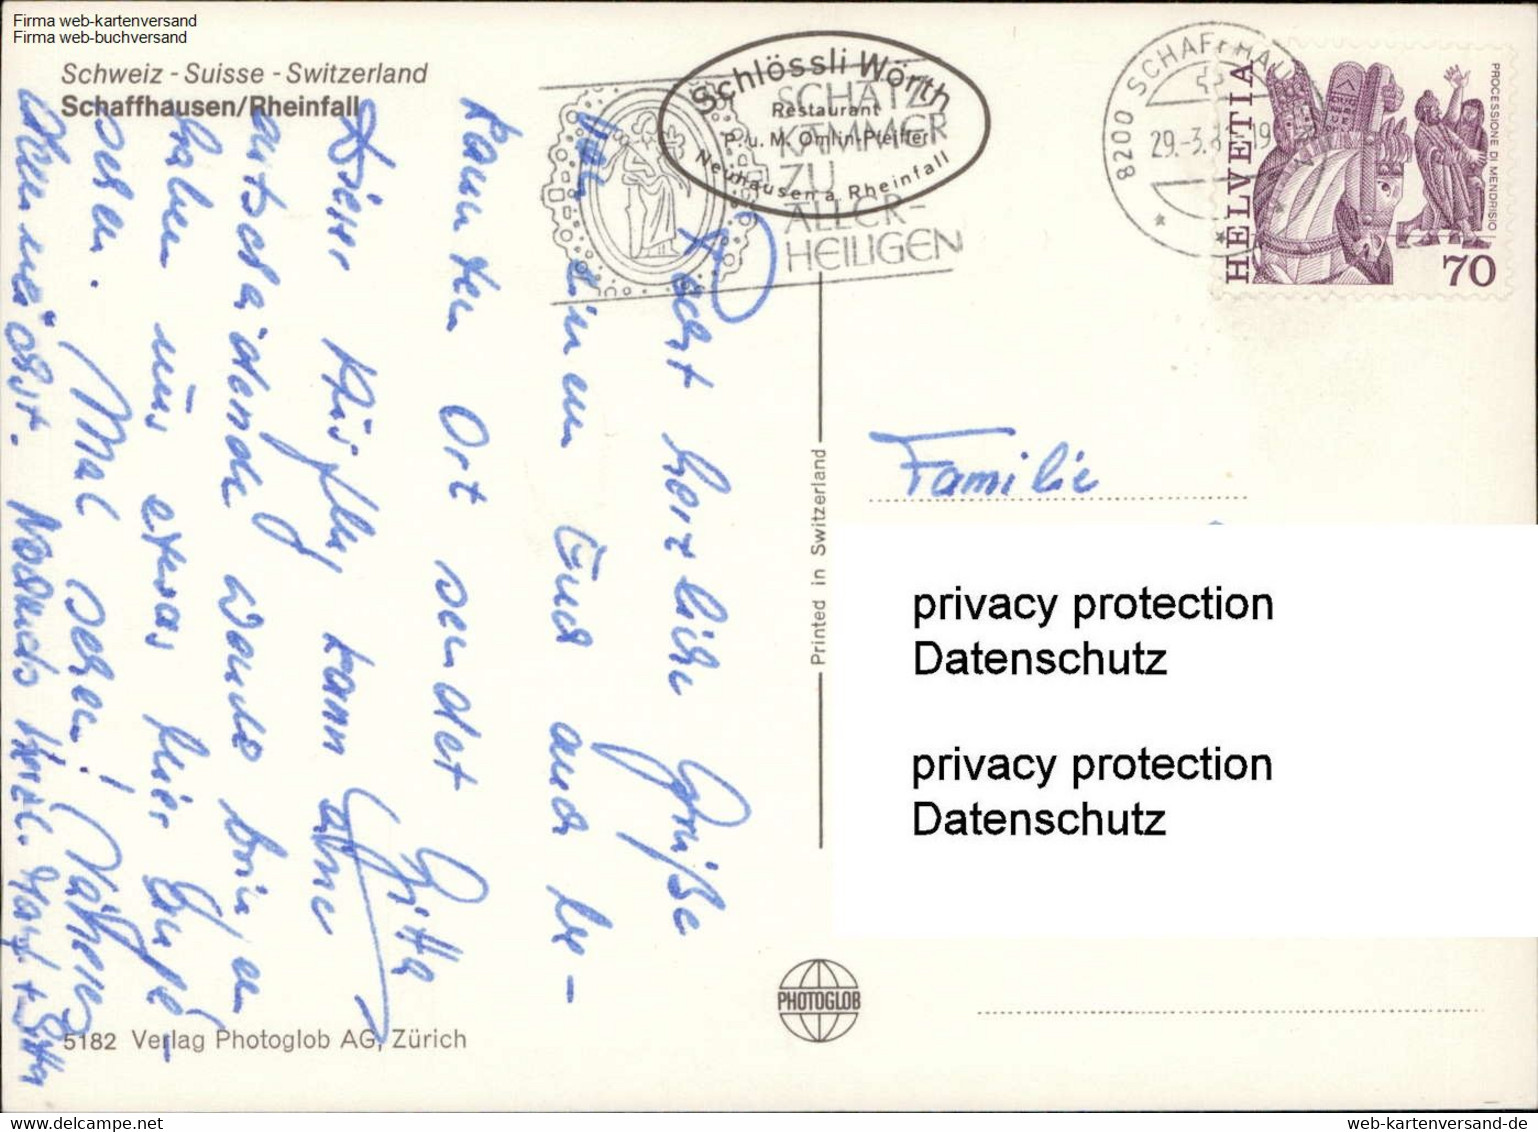 Firma web-kartenversand
Firma web-buchversand
Schweiz - Suisse - Switzerland
Schaffhausen/Rheinfall
Schlössli Wörth
Restaurant
P. u. M. Omlin-Pfeiffer
Neuhausen a. Rheinfall
SCHATZ-
KAMMER
ZU
ALLER-
HEILIGEN
8200 SCHAFFHAUSEN
29.-3.
HELVETIA
PROCESSIONE DI MENDRISIO
70
Recht herzliche Grüße
von einem Euch auch be-
kannten Ort sendet
Gitta
Dieser Ausflug kann ohne
entscheidende
haben uns etwas hier
sehen. Mal sehen!
Nochmals herzl. + Gitta
Familie
Printed in Switzerland
privacy protection
Datenschutz
privacy protection
Datenschutz
PHOTOGLOB
5182 Verlag Photoglob AG, Zürich
www.delcampe.net
web-kartenversand-de